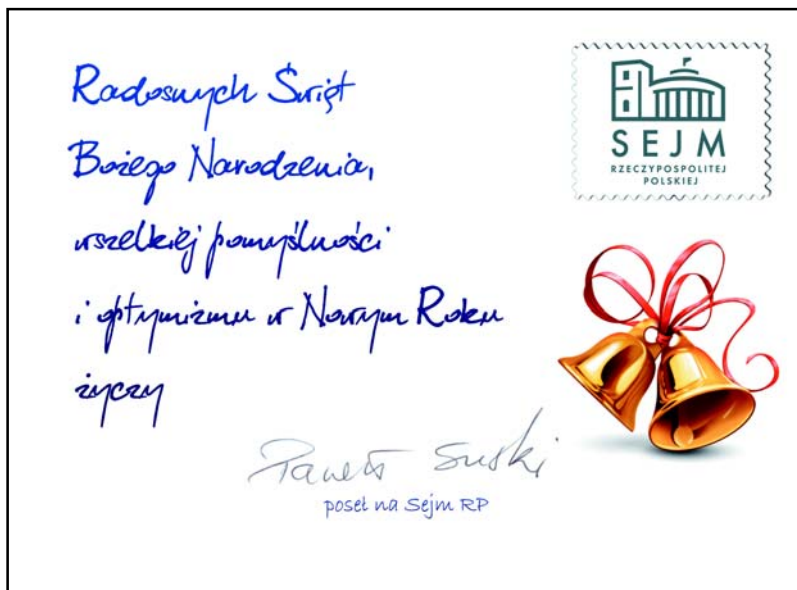 Radosnych Świąt
Bożego Narodzenia,
wszelkiej pomyślności
i optymizmu w Nowym Roku
życzy
Paweł Suski
poseł na Sejm RP
SEJM
RZECZYPOSPOLITEJ
POLSKIEJ